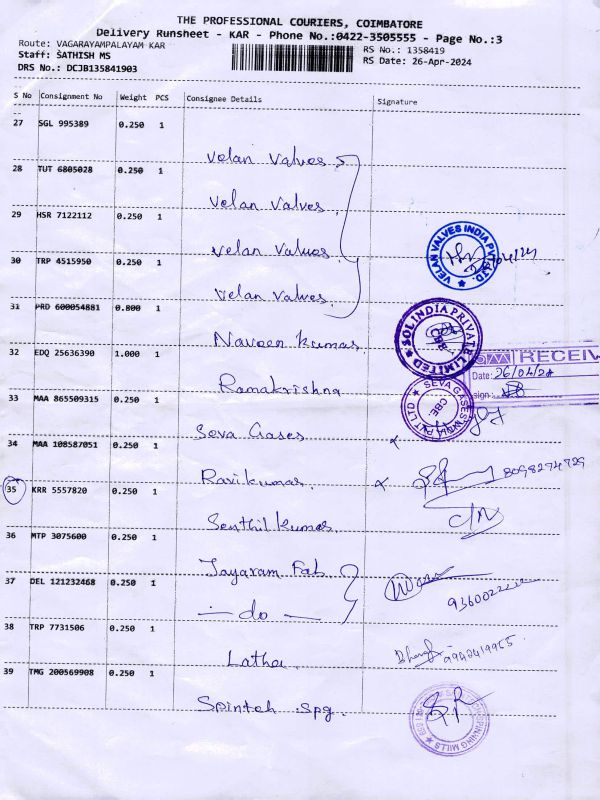 THE PROFESSIONAL COURIERS, COIMBATORE
Delivery Runsheet - KAR - Phone No.:0422-3505555 - Page No.:3
Route: VAGARAYAMPALAYAM KAR
RS No.: 1358419
Staff: SATHISH MS
RS Date: 26-Apr-2024
DRS No.: DCJB135841903
S No Consignment No Weight PCS Consignee Details Signature
27 SGL 995389 0.250 1
Velan Valves
28 TUT 6805028 0.250 1
Velan Valves
29 HSR 7122112 0.250 1
Velan Valves
VELAN VALVES INDIA PVT LTD.
30 TRP 4515950 0.250 1
Velan Valves
31 PRD 600054881 0.800 1
Naveen Kumar
SOL INDIA PRIVATE LIMITED
CBE
32 EDQ 25636390 1.000 1
RECEIV
Date: 26/04/24
Sign:
Ramakrishna
33 MAA 865509315 0.250 1
SEVA GASES PVT LTD
CBE
Seva Gases
34 MAA 108587051 0.250 1
Ravikumar
8098274729
35 KRR 5557820 0.250 1
Senthil Kumar
36 MTP 3075600 0.250 1
Jayaram Fab
37 DEL 121232468 0.250 1
— do —
38 TRP 7731506 0.250 1
Latha
39 TMG 200569908 0.250 1
Spintch Spg.
SPINNING MILLS